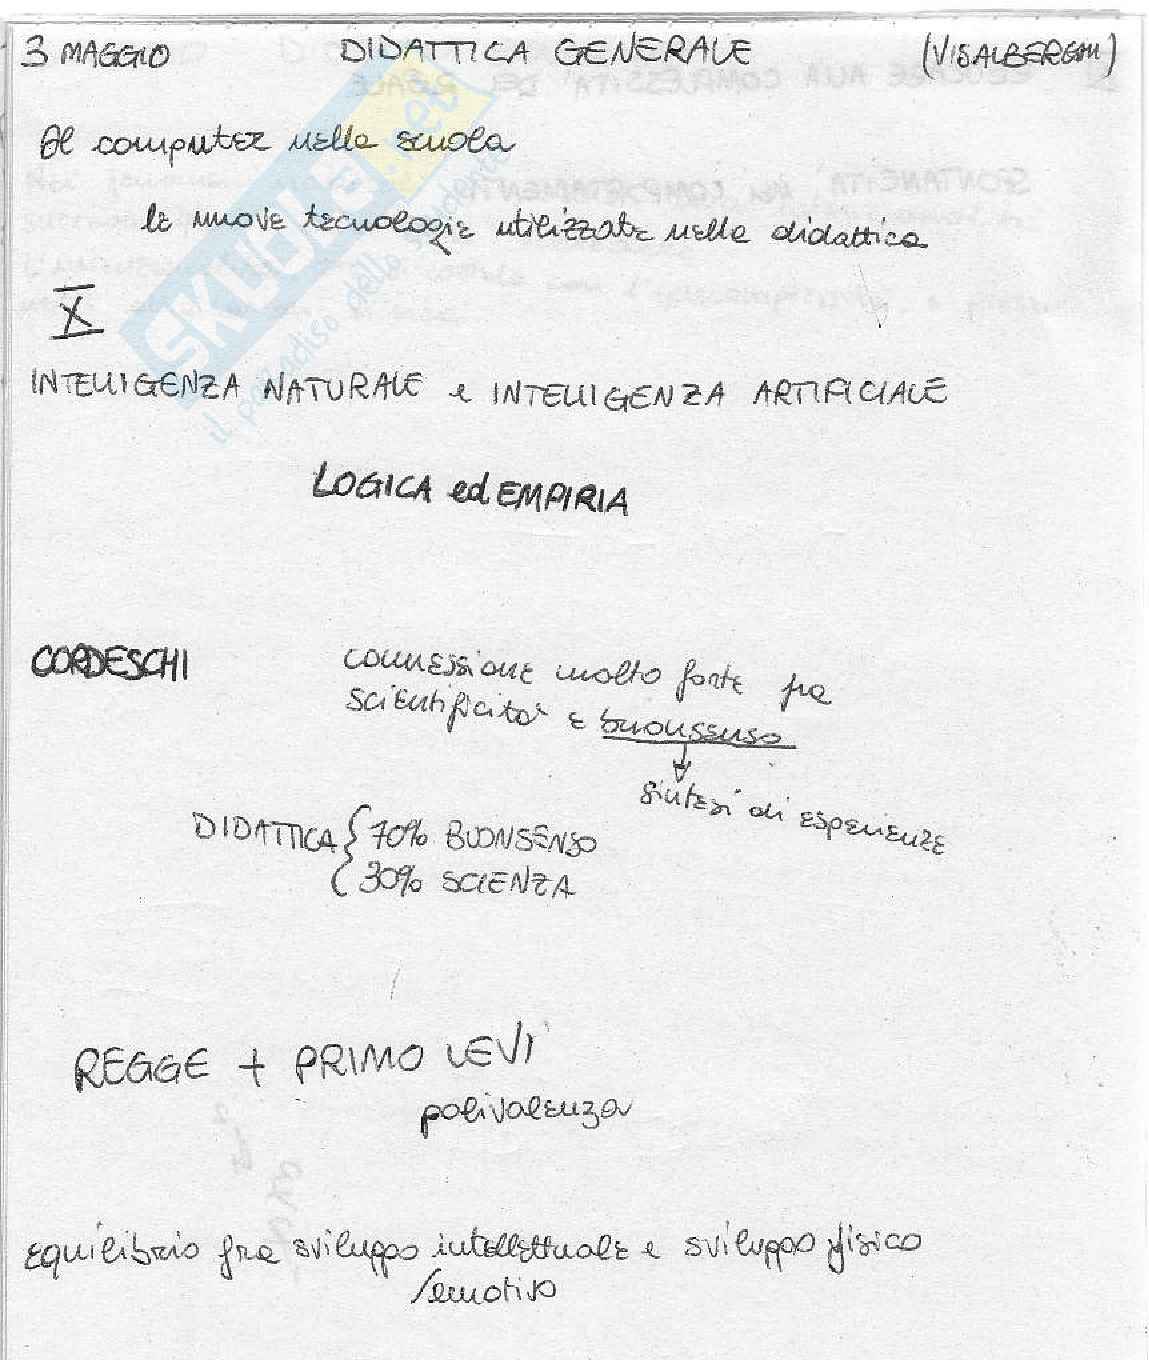 3 MAGGIO DIDATTICA GENERALE (VISALBERGHI)
Il computer nella scuola
le nuove tecnologie utilizzate nella didattica
X
INTELLIGENZA NATURALE e INTELLIGENZA ARTIFICIALE
LOGICA ed EMPIRIA
CORDESCHI connessione molto forte fra
scientificità e buonsenso
sintesi di esperienze
DIDATTICA { 70% BUONSENSO
30% SCIENZA
REGGE + PRIMO LEVI
polivalenza
equilibrio fra sviluppo intellettuale e sviluppo fisico
/emotivo
SKUOLA.net
il paradiso dello studente